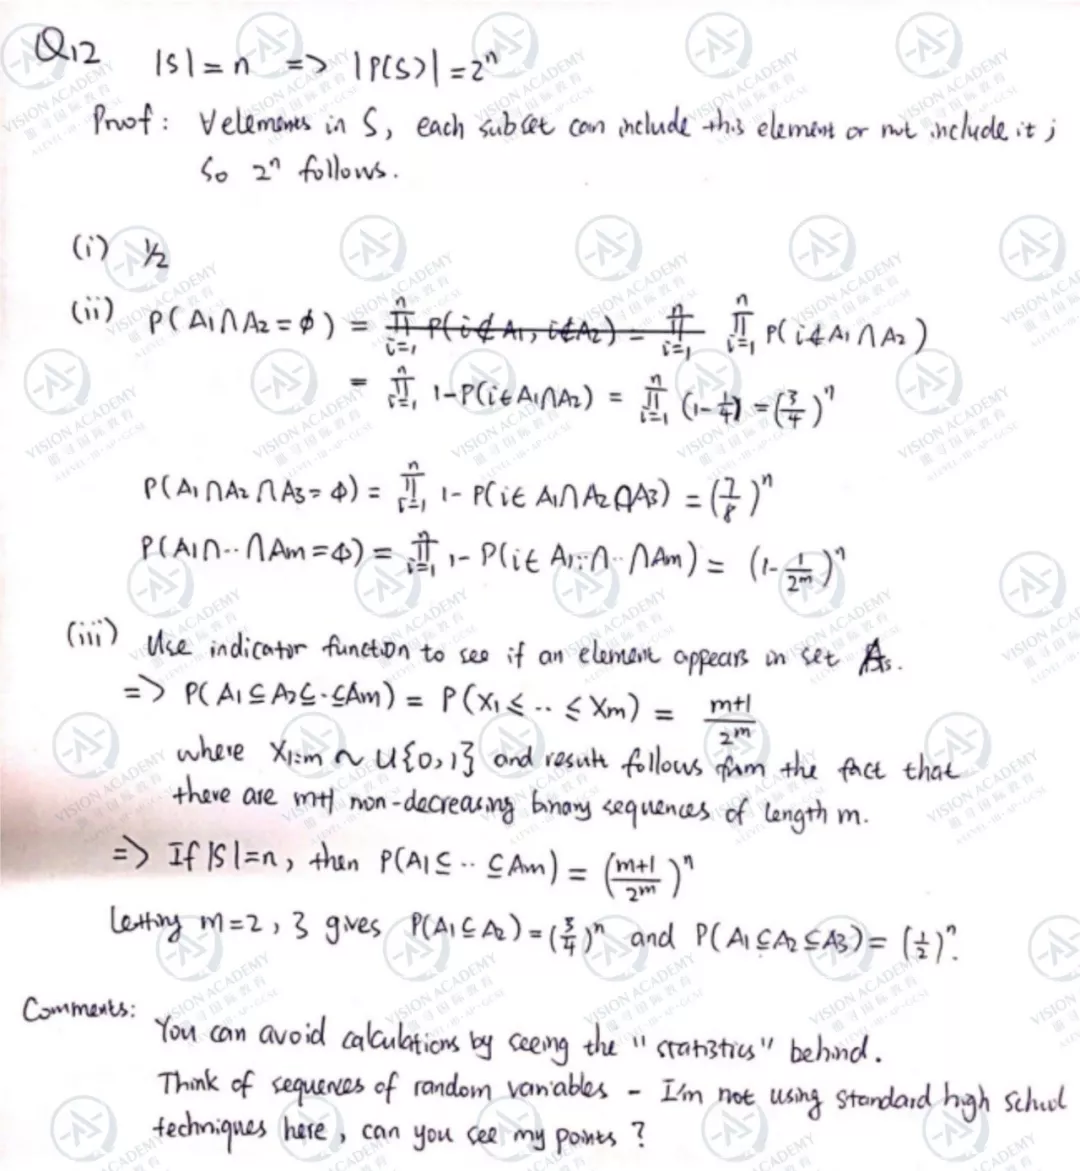 Q12 |S| = n => |P(S)| = 2^n
Proof: ∀ elements in S, each subset can include this element or not include it;
So 2^n follows.
(i) 1/2
(ii) P(A1∩A2=φ) = ∏_{i=1}^n P(i∉A1, i∉A2) = ∏_{i=1}^n ∏_{i=1}^n P(i∉A1∩A2)
= ∏_{i=1}^n 1-P(i∈A1∩A2) = ∏_{i=1}^n (1-1/4) = (3/4)^n
P(A1∩A2∩A3=φ) = ∏_{i=1}^n 1-P(i∈A1∩A2∩A3) = (7/8)^n
P(A1∩..∩Am=φ) = ∏_{i=1}^n 1-P(i∈A1∩..∩Am) = (1-1/2^m)^n
(iii) Use indicator function to see if an element appears in set As.
=> P(A1⊆A2⊆..⊆Am) = P(X1≤..≤Xm) = (m+1)/2^m
where X1:m ~ U{0,1} and result follows from the fact that
there are m+1 non-decreasing binary sequences of length m.
=> If |S|=n, then P(A1⊆..⊆Am) = ((m+1)/2^m)^n
Letting m=2, 3 gives P(A1⊆A2)=(3/4)^n and P(A1⊆A2⊆A3)=(1/2)^n.
Comments:
You can avoid calculations by seeing the "statistics" behind.
Think of sequences of random variables - I'm not using standard high school
techniques here, can you see my points?
VISION ACADEMY